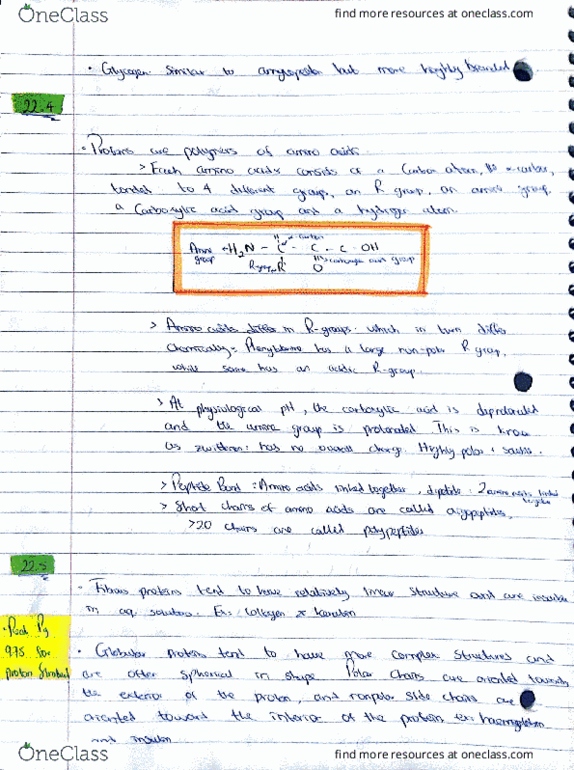 OneClass
find more resources at oneclass.com
• Glycogen: Similar to but more highly branched
22.4
• Proteins are polymers of amino acids.
> Each amino acids consists of a Carbon atom, the α-carbon,
bonded to 4 different groups, an R group, an amine group,
a Carboxylic acid group and a hydrogen atom.
Amine group H₂N - C - C - C - OH
R group R O carboxylic acid group
> Amino acids differ in R-groups which in turn differ
chemically - has a large non-polar R group,
while some has an acidic R-group.
> At physiological pH, the carboxylic acid is
and the amine group is protonated This is know
as has no overall charge. Highly polar
> Peptide Bond: Amino acids linked together, 2 amino acids linked together
> Short chains of amino acids are called
>20 Chains are called polypeptides
22.5
• Fibrous proteins tend to have relatively linear structure and are
in aq. solution. Ex: Collagen & keratin
• Read Pg
975 for
protein
• Globular proteins tend to have more complex structures and
are often spherical in shape Polar chains are oriented towards
the exterior of the protein, and nonpolar side chains are
oriented toward the interior of the protein ex:
and insulin
OneClass
find more resources at oneclass.com